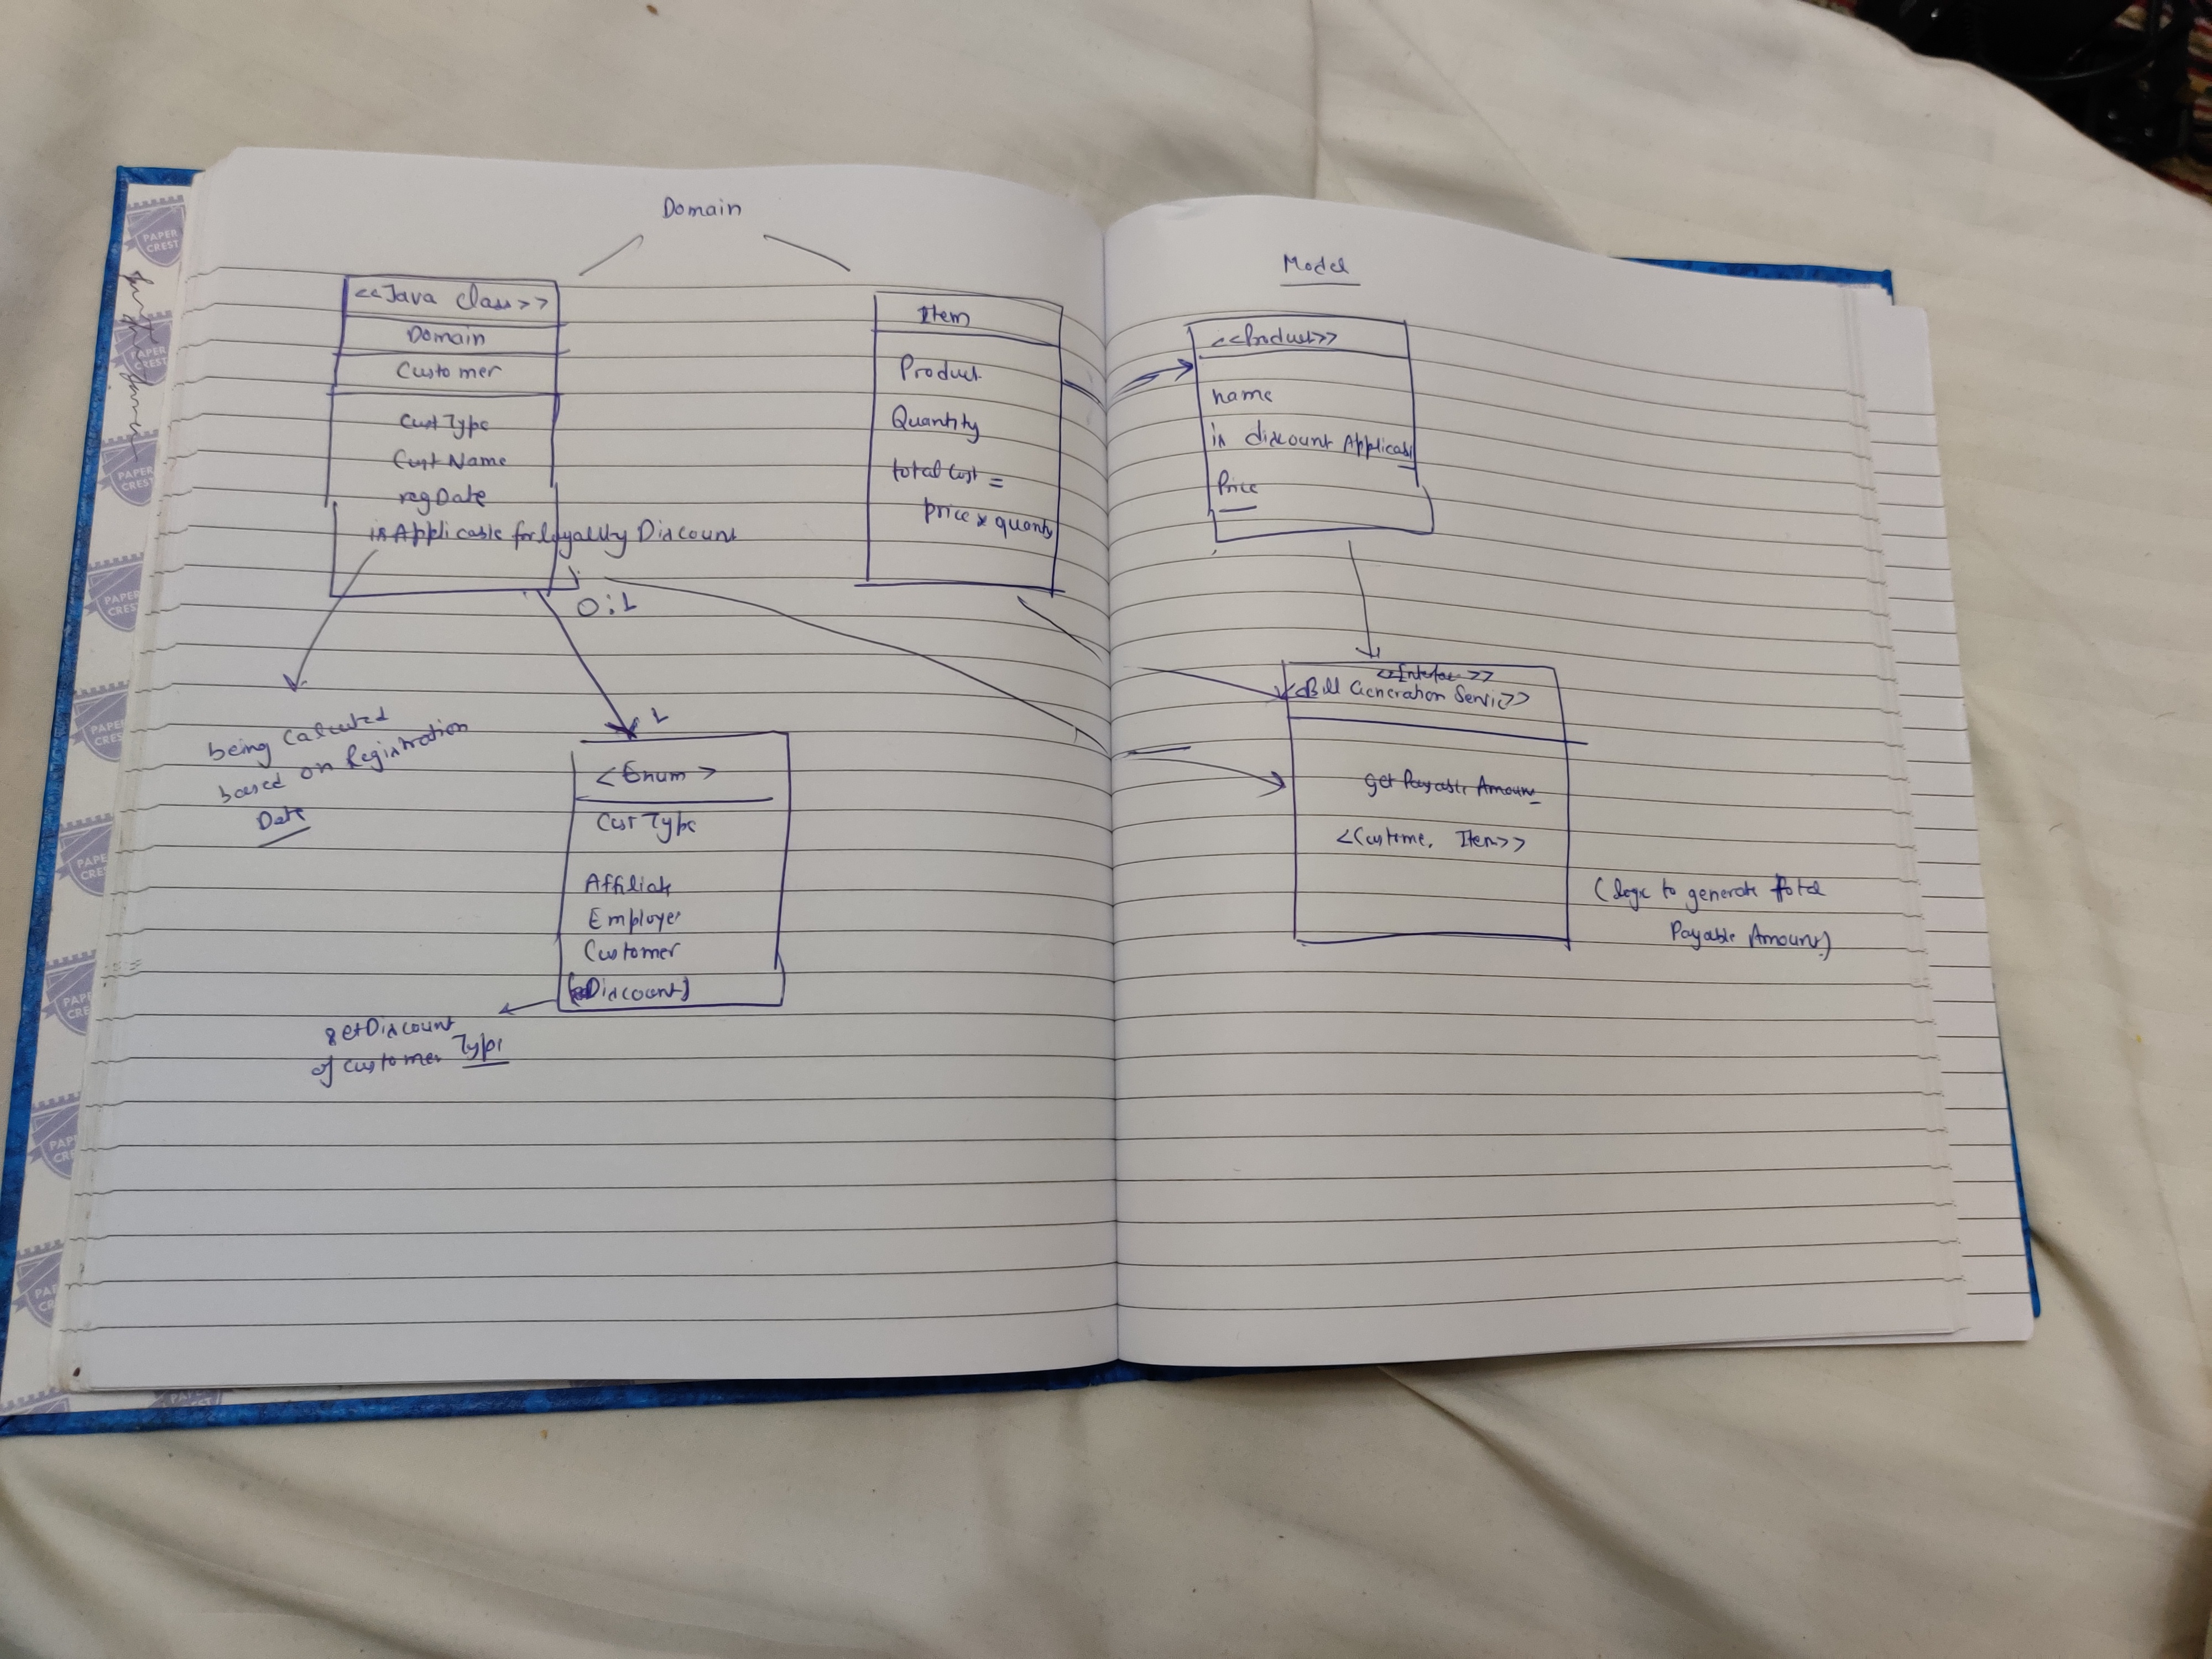 Domain
<<Java Class>>
Domain
Customer
CustType
Cust Name
regDate
isApplicable for loyality Discount
0:1
being Calcuted
based on Registration
Date
1
<Enum>
Cust Type
Affiliate
Employee
Customer
(Discount)
getDiscount
of customer Type
Item
Product
Quantity
total cost =
price * quantity
Model
<<Product>>
name
is discount Applicabl
Price
<<Interface>>
<<Bill Generation Servic>>
get Payable Amount
<Custome, Item>>
(logic to generate total
Payable Amount)
PAPER
CREST
PAPER
CREST
PAPER
PAPER
CRES